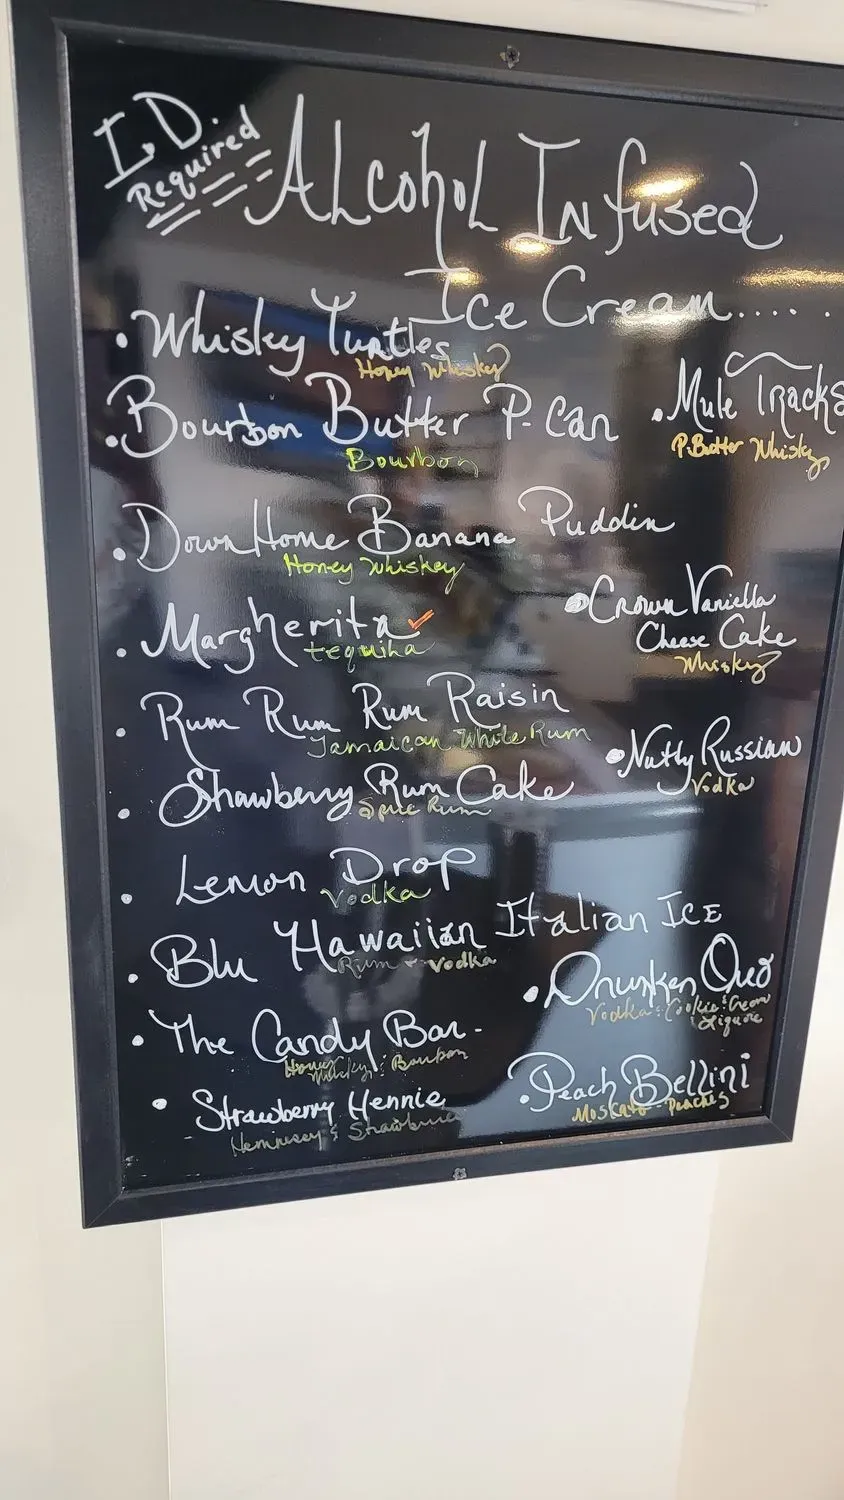 I.D.
Required
ALcohol Infused
Ice Cream.....
• Whisky Turtles
Honey Whiskey
• Bourbon Butter P-Can
Bourbon
• Mule Tracks
P.Butter Whisky
• Down Home Banana Puddin
Honey Whiskey
• Margherita ✓
tequila
• Crown Vaniella
Cheese Cake
Whiskey
• Rum Rum Rum Raisin
Jamaican White Rum
• Nutty Russian
Vodka
• Strawberry Rum Cake
Spice Rum
• Lemon Drop
Vodka
• Blu Hawaiian Italian ICE
Rum + Vodka
• Drunken Oreo
Vodka & Cookie & Cream
& Liquore
• The Candy Bar-
Honey
Whisky & Bourbon
• Peach Bellini
Moskato - Peaches
• Strawberry Hennie
Hennesey &